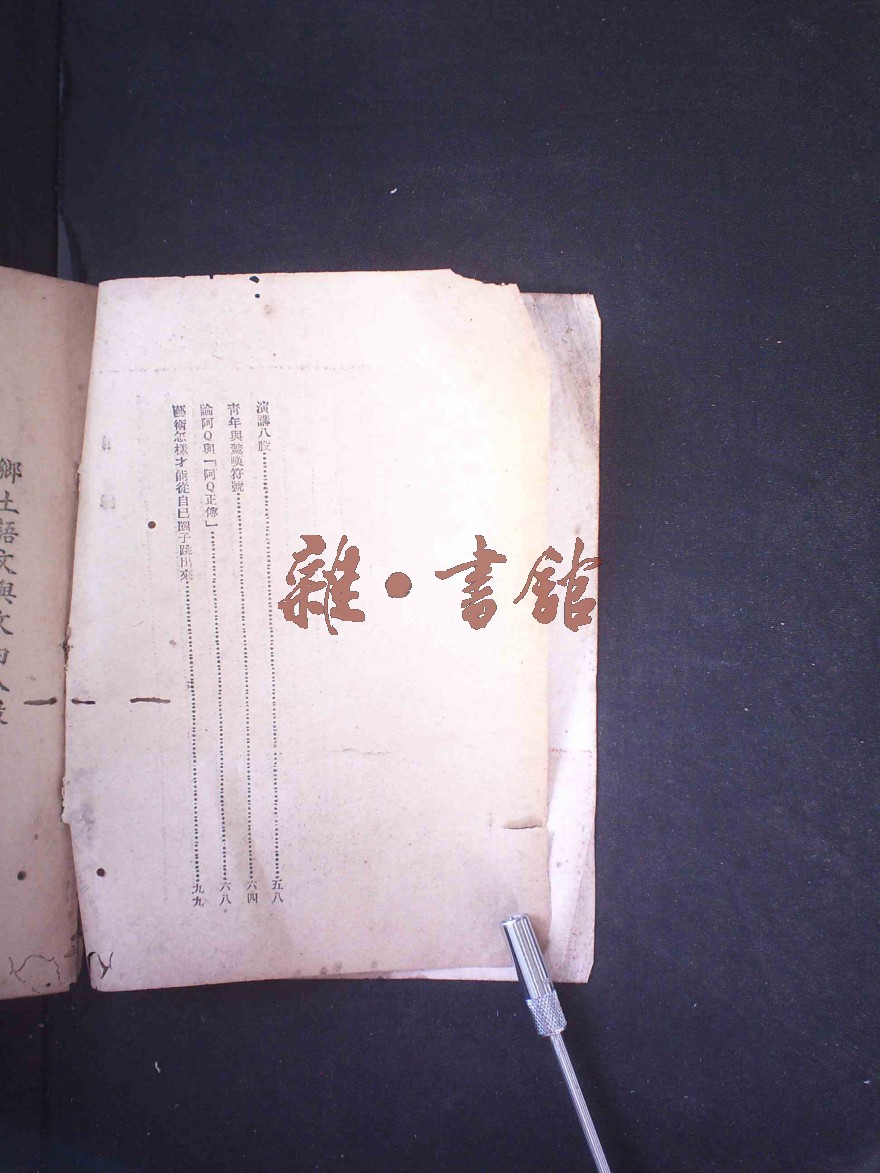 演講八股……五八
青年與驚嘆符號……六四
論阿Q與「阿Q正傳」……六八
藝術怎樣才能從自己圈子跳出來……九九
鄉土語文與文句八股
雜•書館